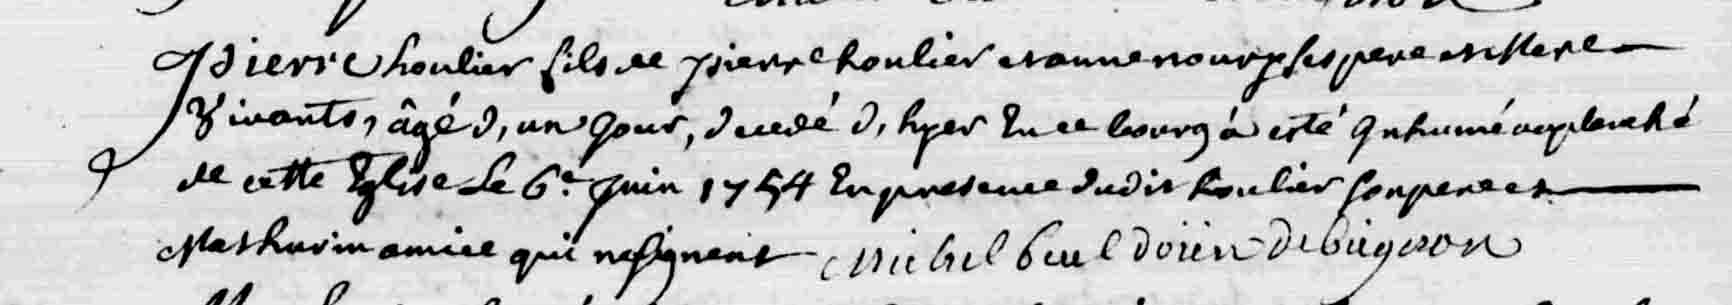 Pierre houlier fils de pierre houlier et anne nourp ses pere et Mere
Vivants, âgé d, un Jour, decedé d, hyer En ce bourg à esté Inhumé au placé
de cette Eglise Le 6e. Juin 1754 En presence dudit houlier son pere et
Mathurin amice qui ne signent Michel doïen de bugnon